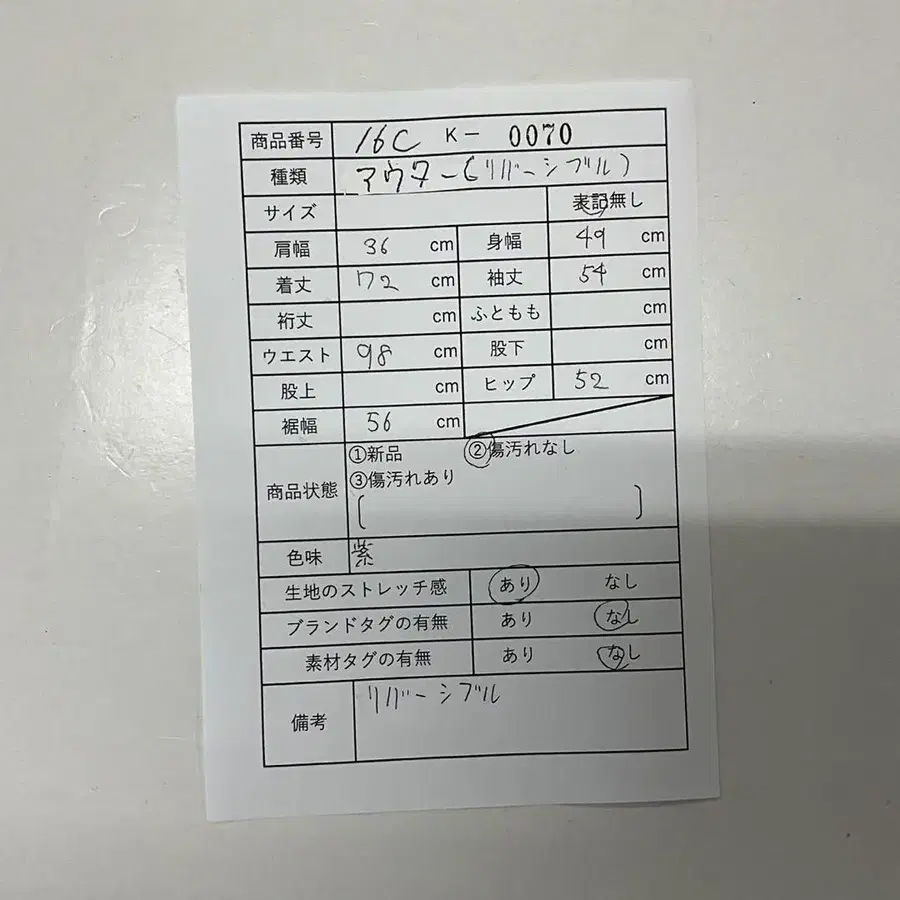 商品番号 16C K- 0070
種類 アウター(リバーシブル)
サイズ 表記無し
肩幅 36 cm 身幅 49 cm
着丈 72 cm 袖丈 54 cm
裄丈 cm ふともも cm
ウエスト 98 cm 股下 cm
股上 cm ヒップ 52 cm
裾幅 56 cm
①新品 ②傷汚れなし
商品状態 ③傷汚れあり
[ ]
色味 紫
生地のストレッチ感 あり なし
ブランドタグの有無 あり なし
素材タグの有無 あり なし
備考 リバーシブル